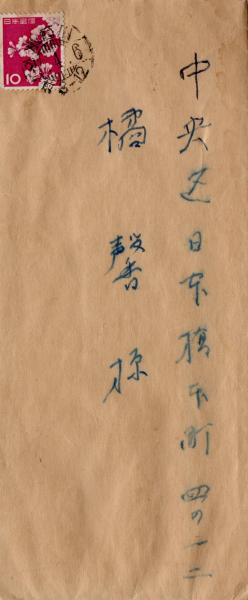 中央区日本橋本町四の一二
橘馨様
日本郵便
10